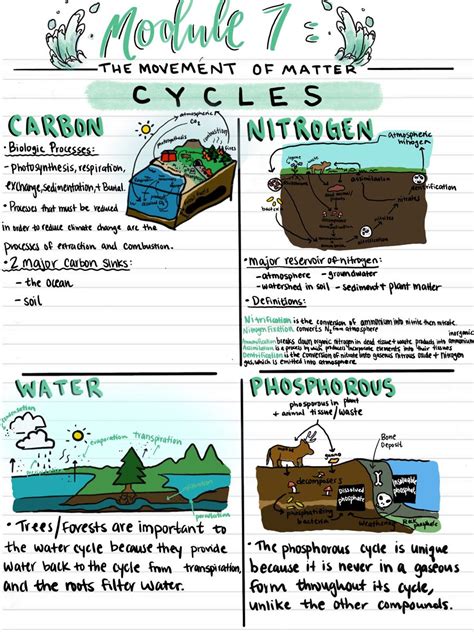 Module 7:
THE MOVEMENT OF MATTER
CYCLES
CARBON
• Biologic Processes:
- photosynthesis, respiration,
exchange, sedimentation, + Burial.
• Processes that must be reduced
in order to reduce climate change are the
processes of extraction and combustion.
• 2 major Carbon Sinks:
- the ocean
- soil
atmospheric
CO₂
photosynthesis
combustion
fires
NITROGEN
atmospheric
nitrogen
assimilation
denitrification
nitrates
nitrites
nitrification
bacteria
• Major reservoir of nitrogen:
- atmosphere - groundwater
- watershed in soil - sediment + plant matter
• Definitions:
Nitrification is the conversion of ammonium into nitrite then nitrate.
Nitrogen Fixation converts N₂ from atmosphere
inorganic
Ammonification breaks down organic nitrogen in dead tissue + waste products into ammonium
Assimilation is a process by which producers incorporate elements into their tissues
Denitrification is the conversion of nitrate into gaseous nitrous oxide + nitrogen
gas, which is emitted into atmosphere
WATER
condensation
evaporation
transpiration
infiltration
percolation
• Trees/Forests are important to
the water cycle because they provide
water back to the cycle from transpiration,
and the roots filter water.
PHOSPHOROUS
phosphorous in plant
+ animal tissue/waste
guano
Bone
Deposit
decomposers
Dissolved
phosphate
Insoluable
phosphate
phosphatizing
bacteria
weathering
Rock phosphate
• The phosphorous cycle is unique
because it is never in a gaseous
form throughout its cycle,
unlike the other compounds.